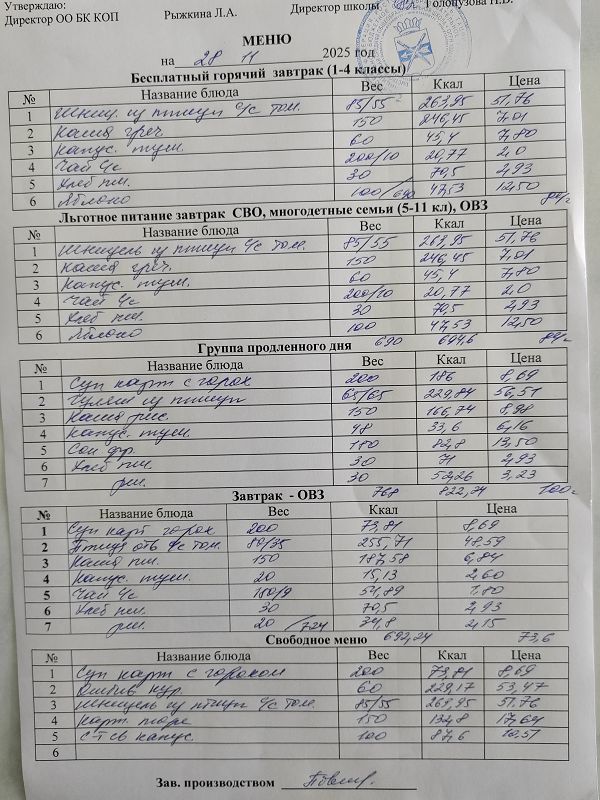 Утверждаю:
Директор ОО БК КОП Рыжкина Л.А. Директор школы Голопузова Н.В.
МЕНЮ
на 28 11 2025 год
Бесплатный горячий завтрак (1-4 классы)
№ Название блюда Вес Ккал Цена
1 Шниц. из птицы с/с том. 85/55 263,95 51,76
2 Каша греч. 150 246,45 7,01
3 Капус. туш. 60 45,4 7,80
4 Чай с/с 200/10 20,77 2,0
5 Хлеб пш. 30 70,5 2,93
6 Яблоко 100/690 47,53 12,50
Льготное питание завтрак СВО, многодетные семьи (5-11 кл), ОВЗ
№ Название блюда Вес Ккал Цена
1 Шницель из птицы с/с том. 85/55 263,95 51,76
2 Каша греч. 150 246,45 7,01
3 Капус. туш. 60 45,4 7,80
4 Чай с/с 200/10 20,77 2,0
5 Хлеб пш. 30 70,5 2,93
6 Яблоко 100 47,53 12,50
690 694,6
Группа продленного дня
№ Название блюда Вес Ккал Цена
1 Суп карт с горох 200 186 8,69
2 Гуляш из птицы 65/65 229,84 56,51
3 Каша рис. 150 166,74 8,98
4 Капус. туш. 48 33,6 6,16
5 Сок фр. 180 82,8 13,50
6 Хлеб пш. 30 71 2,93
7 рж. 30 52,26 3,23
768 822,24 100
Завтрак - ОВЗ
№ Название блюда Вес Ккал Цена
1 Суп карт горох 200 73,81 8,69
2 Птица отв с/с том. 80/35 255,71 48,59
3 Каша пш. 150 187,58 6,84
4 Капус. туш. 20 15,13 2,60
5 Чай с/с 180/9 54,89 1,80
6 Хлеб пш. 30 70,5 2,93
7 рж. 20/724 34,8 2,15
692,24 73,6
Свободное меню
№ Название блюда Вес Ккал Цена
1 Суп карт с горохом 200 73,81 8,69
2 кур. 60 229,17 53,47
3 Шницель из птицы с/с том. 85/55 263,95 51,76
4 Карт. пюре 150 132,8 17,64
5 С-т св капус. 100 87,6 10,51
6
Зав. производством